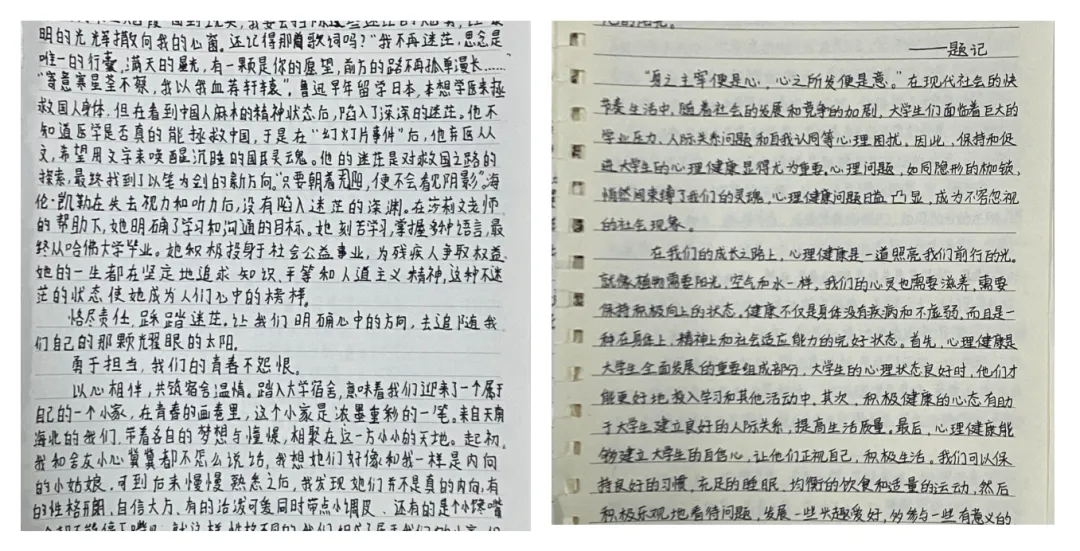 明的光辉撒向我的心窗。还记得那首歌词吗？“我不再迷茫，思念是
唯一的行囊，满天的星光，有一颗是你的愿望，前方的路不再孤单漫长……”
“寄意寒星荃不察，我以我血荐轩辕”，鲁迅早年留学日本，本想学医来拯
救国人身体，但在看到中国人麻木的精神状态后，陷入了深深的迷茫。他不
知道医学是否真的能拯救中国，于是在“幻灯片事件”后，他弃医从
文，希望用文字来唤醒沉睡的国民灵魂。他的迷茫是对救国之路的
探索，最终找到了以笔为剑的新方向。“只要朝着阳光，便不会看见阴影”。海
伦·凯勒在失去视力和听力后，没有陷入迷茫的深渊。在莎莉文老师
的帮助下，她明确了学习和沟通的目标。她刻苦学习，掌握多种语言，最
终从哈佛大学毕业。她积极投身于社会公益事业，为残疾人争取权益
她的一生都在坚定地追求知识、平等和人道主义精神，这种不迷
茫的状态使她成为人们心中的榜样。
恪尽责任，踩踏迷茫。让我们明确心中的方向，去追随我
们自己的那颗耀眼的太阳。
勇于担当，我们的青春不怨恨。
以心相伴，共筑宿舍温情。踏入大学宿舍，意味着我们迎来了一个属于
自己的一个小家，在青春的画卷里，这个小家是浓墨重彩的一笔。来自天南
海北的我们，带着各自的梦想与憧憬，相聚在这一方小小的天地。起初，
我和舍友小心翼翼都不怎么说话，我想她们好像和我一样是内向
的小姑娘，可到后来慢慢熟悉之后，我发现她们并不是真的内向，有
的性格开朗、自信大方、有的活泼可爱同时带点小调皮、还有的是个小馋嘴
——题记
“身之主宰便是心，心之所发便是意。”在现代社会的快
节奏生活中，随着社会的发展和竞争的加剧，大学生们面临着巨大的
学业压力、人际关系问题和自我认同等心理困扰，因此，保持和促
进大学生的心理健康显得尤为重要。心理问题，如同隐形的枷锁，
悄然间束缚了我们的灵魂，心理健康问题日益凸显，成为不容忽视
的社会现象。
在我们的成长之路上，心理健康是一道照亮我们前行的光。
就像植物需要阳光，空气和水一样，我们的心灵也需要滋养，需要
保持积极向上的状态。健康不仅是身体没有疾病和不虚弱，而且是一
种在身体上，精神上和社会适应能力的完好状态。首先，心理健康是
大学生全面发展的重要组成部分，大学生的心理状态良好时，他们才
能更好地投入学习和其他活动中，其次，积极健康的心态有助
于大学生建立良好的人际关系，提高生活质量。最后，心理健康能
够建立大学生的自信心，让他们正视自己，积极生活。我们可以保
持良好的习惯，充足的睡眠、均衡的饮食和适量的运动，然后
积极乐观地看待问题，发展一些兴趣爱好，多参与一些有意义的